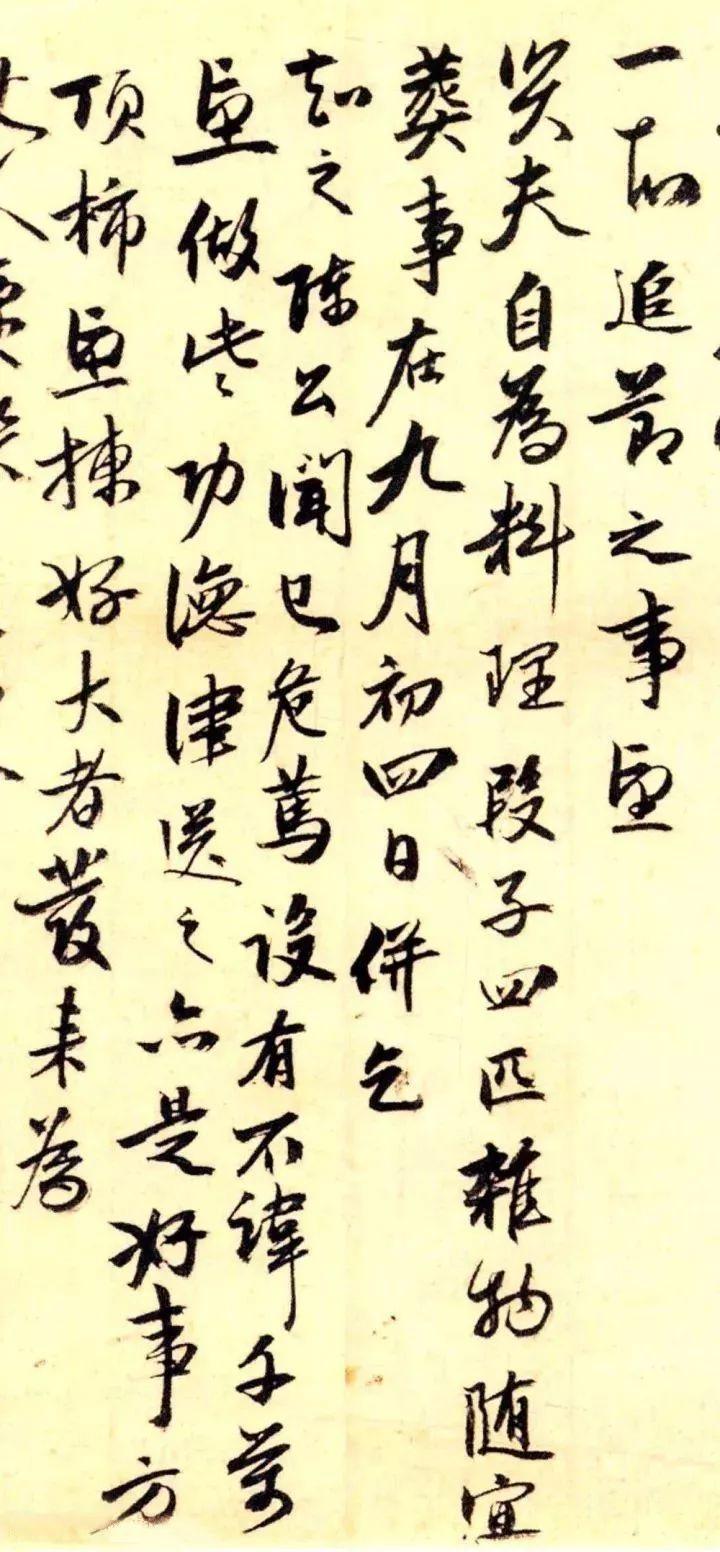 一 追節之事望
夫自為料理段子四匹雜物随宜
葬事在九月初四日併乞
知之陳公聞已危篤設有不諱千萬
望做些功德津送之亦是好事方
頂柿望揀好大者發来為